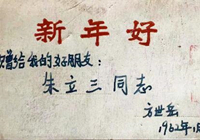 新年好
赠给我的好朋友：
朱立三同志
方世岳
1962年1月